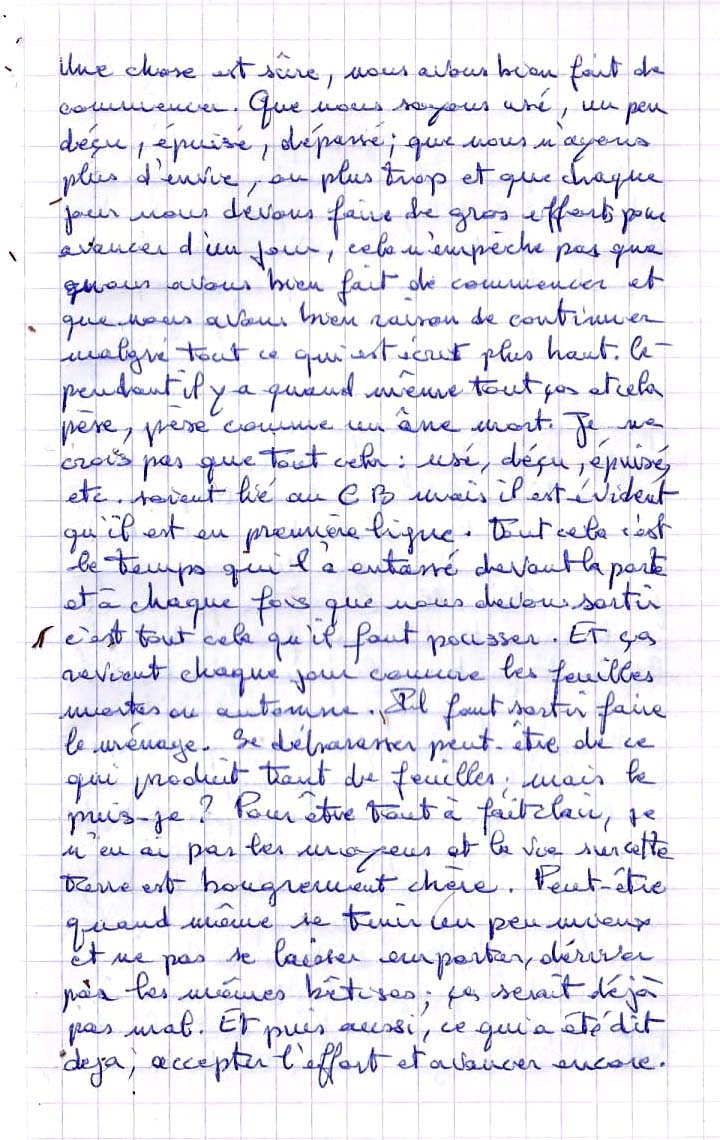 Une chose est sûre, nous avons bien fait de
commencer. Que nous soyons usé, un peu
déçu, épuisé, dépassé; que nous n'ayons
plus d'envie, ou plus trop et que chaque
jour nous dévons faire de gros efforts pour
avancer d'un jour, cela n'empèche pas que
nous avons bien fait de commencer et
que nous avons bien raison de continuer
malgré tout ce qui est écrit plus haut. Ce-
pendant il y a quand même tout ças et cela
pèse, pèse comme un âne mort. Je ne
crois pas que tout cela: usé, déçu, épuisé,
etc. soient lié au CB mais il est évident
qu'il est en première ligne. Tout cela c'est
le temps qui l'à entassé devant la porte
et à chaque fois que nous devons sortir
c'est tout cela qu'il faut pousser. Et ças
revient chaque jour comme les feuilles
mortes en automne. Il faut sortir faire
le ménage. Se débarasser peut-être de ce
qui produit tant de feuilles; mais le
puis-je? Pour être tout à fait clair, je
n'en ai pas les moyens et la vie sur cette
terre est bougrement chère. Peut-être
quand même se tenir un peu mieux
et ne pas se laisser emporter, dériver
par les mêmes bêtises; ças serait déjà
pas mal. Et puis aussi, ce qui a été dit
deja, accepter l'effort et avancer encore.